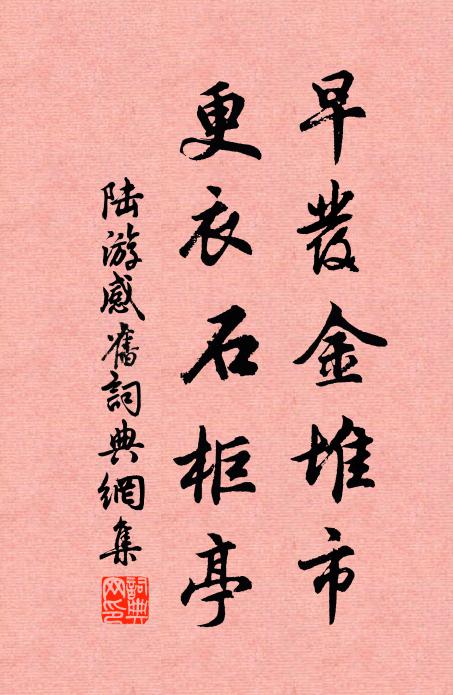 早發金堆市
更衣石柜亭
陆游感舊詞典網集
詞典網印